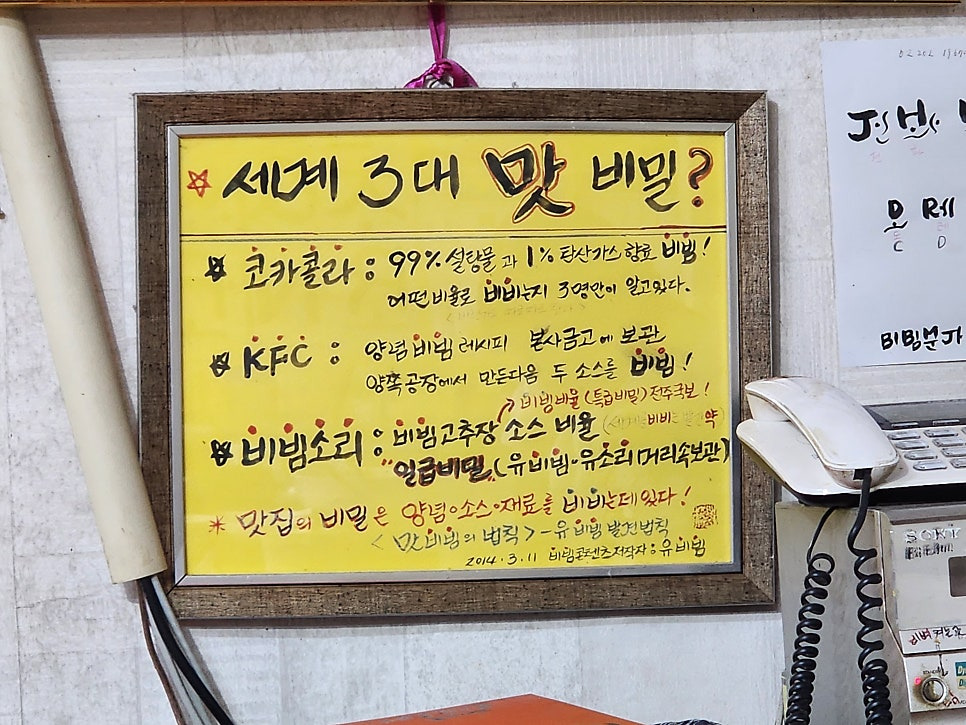 세계 3대 맛 비밀?
코카콜라 : 99% 설탕물과 1% 탄산가스 향료 비빔!
어떤 비율로 비비는지 3명만이 알고있다.
KFC : 양념 비빔 레시피 본사금고에 보관
양쪽공장에서 만든다음 두 소스를 비빔!
비빔비율 (특급비밀) 전주국보!
비빔소리 : 비빔고추장 소스 비율
"일급비밀" (유비빔·유소리 머리속보관)
* 맛집의 비밀은 양념·소스·재료를 비비는데 있다!
<맛비빔의 법칙> - 유비빔 발견법칙
2014.3.11 비빔콘텐츠저작자 : 유비빔
전 보
도 레
C D
비빔문자